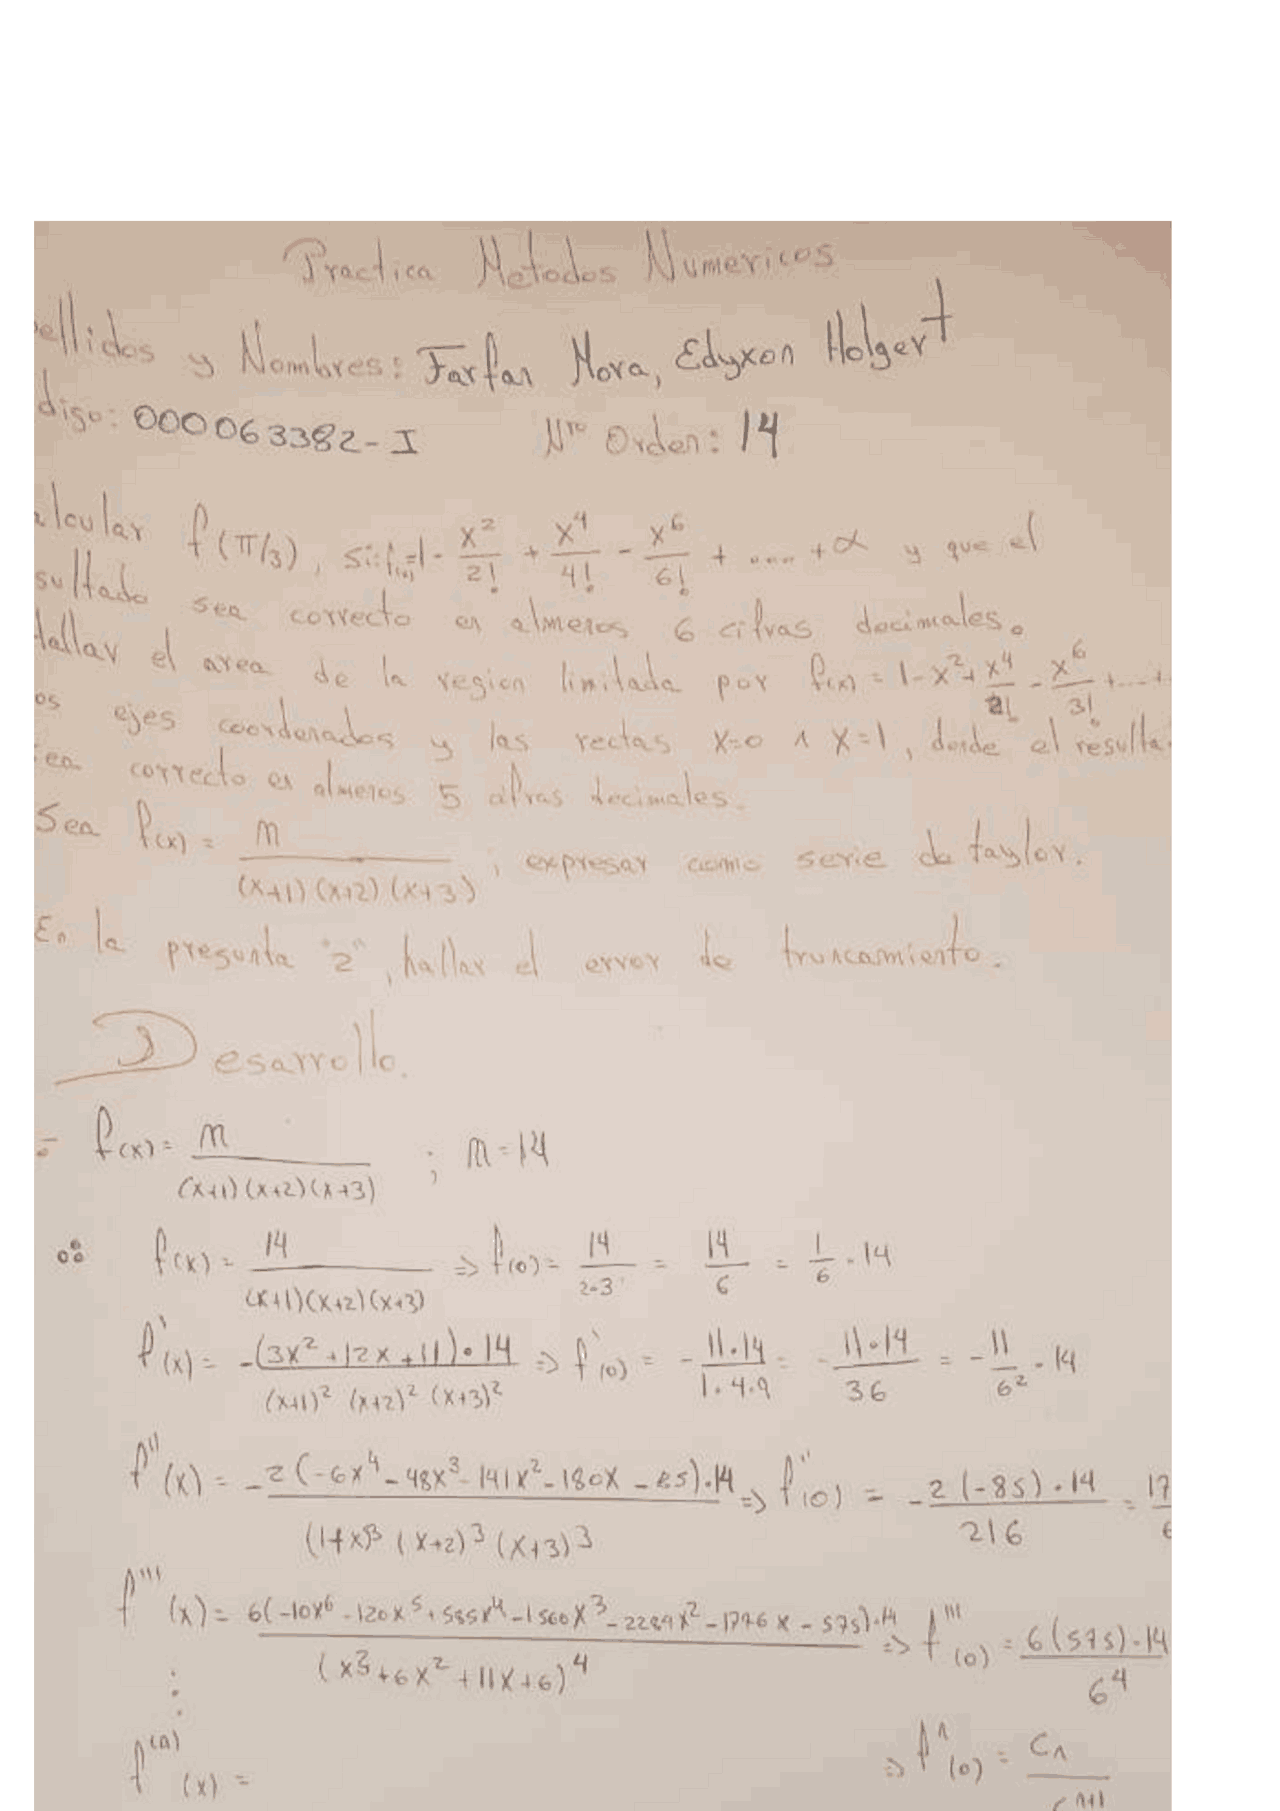 Practica Metodos Numericos
ellidos y Nombres: Farfan Mora, Edyxon Holgert
digo: 000063382-I Nro Orden: 14
alcular f(π/3), si: f(x)=1 - x²/2! + x⁴/4! - x⁶/6! + .... + α y que el
sultado sea correcto en almenos 6 cifras decimales.
Hallar el area de la region limitada por f(x) = 1 - x² + x⁴/2! - x⁶/3! + ....+
os ejes coordenados y las rectas x=0 ∧ x=1, donde el resulta
ea correcto en almenos 5 cifras decimales.
Sea f(x) = m/((x+1)(x+2)(x+3)), expresar como serie de taylor.
En la pregunta "2", hallar el error de truncamiento.
Desarrollo.
f(x) = m/((x+1)(x+2)(x+3)) ; m = 14
f(x) = 14/((x+1)(x+2)(x+3)) => f(0) = 14/(2·3) = 14/6 = 1/6 · 14
f'(x) = -(3x²+12x+11)·14/((x+1)² (x+2)² (x+3)²) => f'(0) = -11·14/(1·4·9) = -11·14/36 = -11/6² · 14
f''(x) = -2(-6x⁴-48x³-141x²-180x-85)·14/((1+x)³ (x+2)³ (x+3)³) => f''(0) = -2(-85)·14/216 = 17
f'''(x) = 6(-10x⁶-120x⁵+585x⁴-1560x³-2289x²-1776x-575)·14/(x³+6x²+11x+6)⁴ => f'''(0) = 6(575)·14/6⁴
⋮
f⁽ⁿ⁾(x) = => fⁿ(0) = Cn